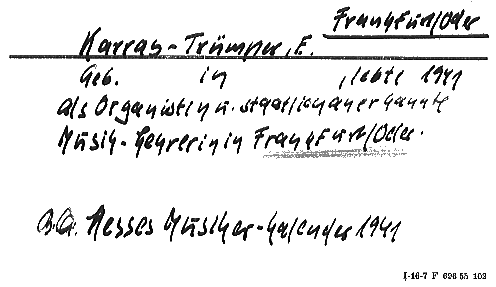 Frankfurt/Oder
Karras-Trümper, E.
Geb. in , lebte 1941
als Organistin u. staatlich anerkannte
Musik-Lehrerin in Frankfurt/Oder.
Hesses Musiker-Kalender 1941
I-16-7 F 626 55 102